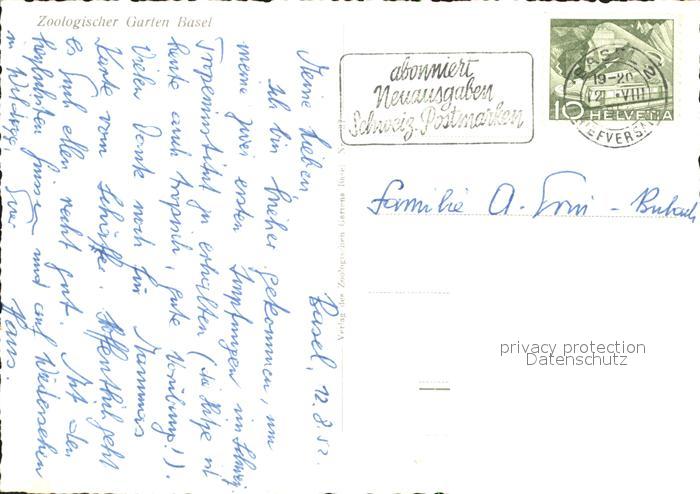 Zoologischer Garten Basel
Basel, 12.8.52.
Meine Lieben,
Ich bin hieher gekommen, um
meine zwei ersten Impfungen im Schweiz.
Tropeninstitut zu erhalten (die Hitze ist
heute auch tropisch, gute Vorübung!).
Vielen Dank noch für Mammas
Karte vom Schäffer. Hoffentlich geht
es Euch allen recht gut. Mit den
herzlichsten Grüssen und auf Wiedersehen
in Wildegg, Euer Hans.
Verlag des Zoologischen Gartens Basel
abonniert
Neuausgaben
Schweiz. Postmarken
BASEL 2
19-20
12. VIII
BRIEFVERSAND
10 HELVETIA
Familie A.
privacy protection
Datenschutz